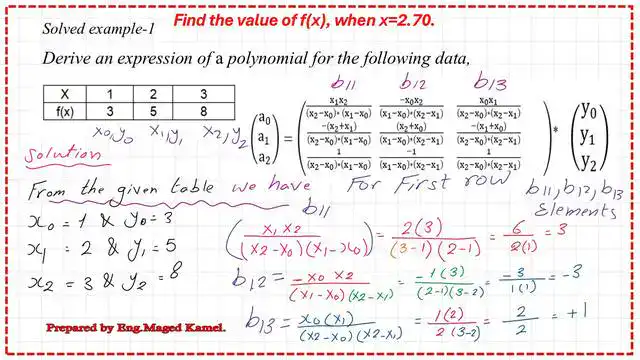 Find the value of f(x), when x=2.70.
Solved example-1
Derive an expression of a polynomial for the following data,
b11 b12 b13
X 1 2 3
f(x) 3 5 8
x0,y0 x1,y1 x2,y2
(a0 a1 a2) = ( x1x2/((x2−x0)∗(x1−x0)) −x0x2/((x1−x0)∗(x2−x1)) x0x1/((x2−x0)∗(x2−x1))
−(x2+x1)/((x2−x0)∗(x1−x0)) (x2+x0)/((x1−x0)∗(x2−x1)) −(x1+x0)/((x2−x0)∗(x2−x1))
1/((x2−x0)∗(x1−x0)) −1/((x1−x0)∗(x2−x1)) 1/((x2−x0)∗(x2−x1)) ) * (y0 y1 y2)
Solution
From the given table we have
For First row
b11, b12, b13
Elements
x0 = 1 & y0 = 3
x1 = 2 & y1 = 5
x2 = 3 & y2 = 8
b11
(x1 x2/((x2−x0)(x1−x0)) = 2(3)/((3−1)(2−1)) = 6/2(1) = 3
b12 = −x0 x2/((x1−x0)(x2−x1)) = −1(3)/((2−1)(3−2)) = −3/1(1) = −3
b13 = x0(x1)/((x2−x0)(x2−x1)) = 1(2)/(2(3−2)) = 2/2 = +1
Prepared by Eng.Maged Kamel.